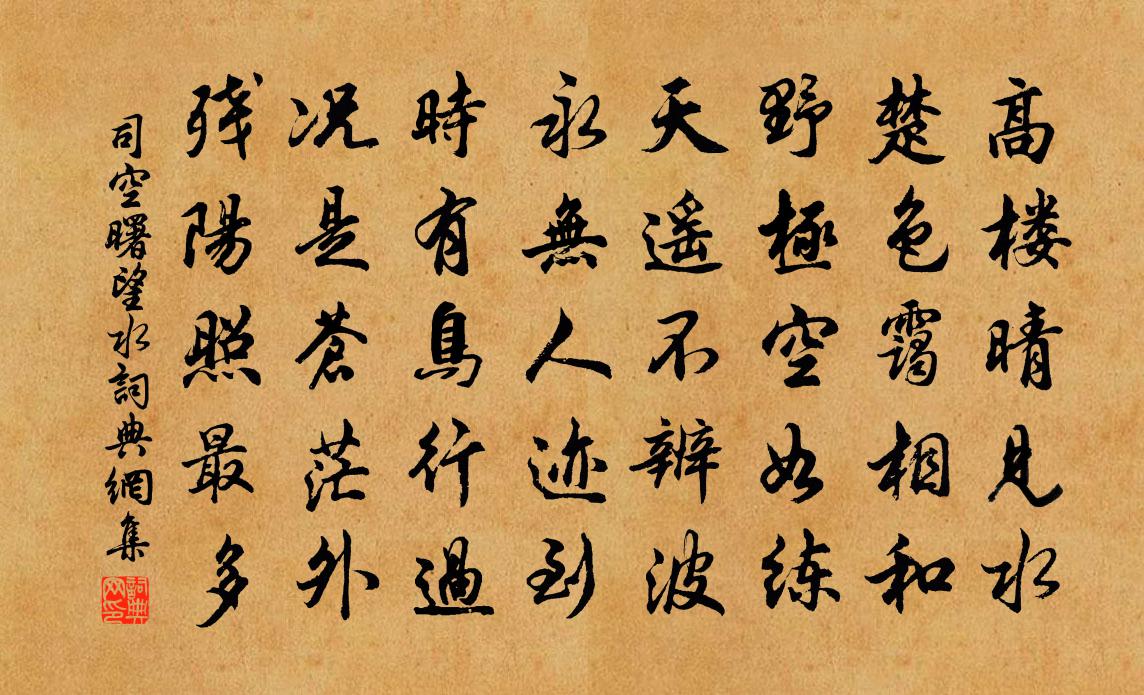 高楼晴見水
楚色靄相和
野極空如练
天遥不辨波
永無人迹到
時有鳥行過
况是蒼茫外
残陽照最多
司空曙望水詞典網集
詞典网印